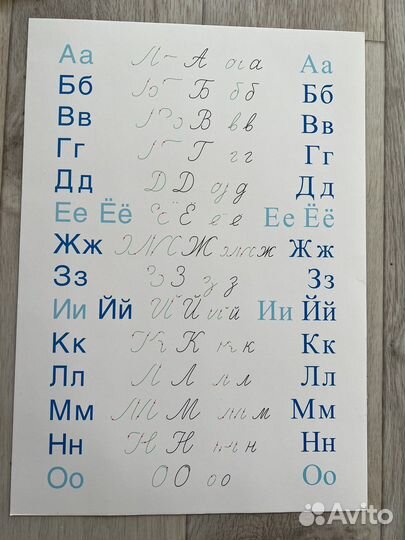 Аа Л А оı а Аа
Бб Б б б Бб
Вв В в в Вв
Гг Г г г Гг
Дд D D д д Дд
Ее Ёё Ё Ё ё е Ее Ёё
Жж Ж Ж ж ж Жж
Зз З З з з Зз
Ии Йй Й Й й й Ии Йй
Кк К К к к Кк
Лл Л Л л л Лл
Мм М М м м Мм
Нн Н Н н н Нн
Оо О О о о Оо
Avito